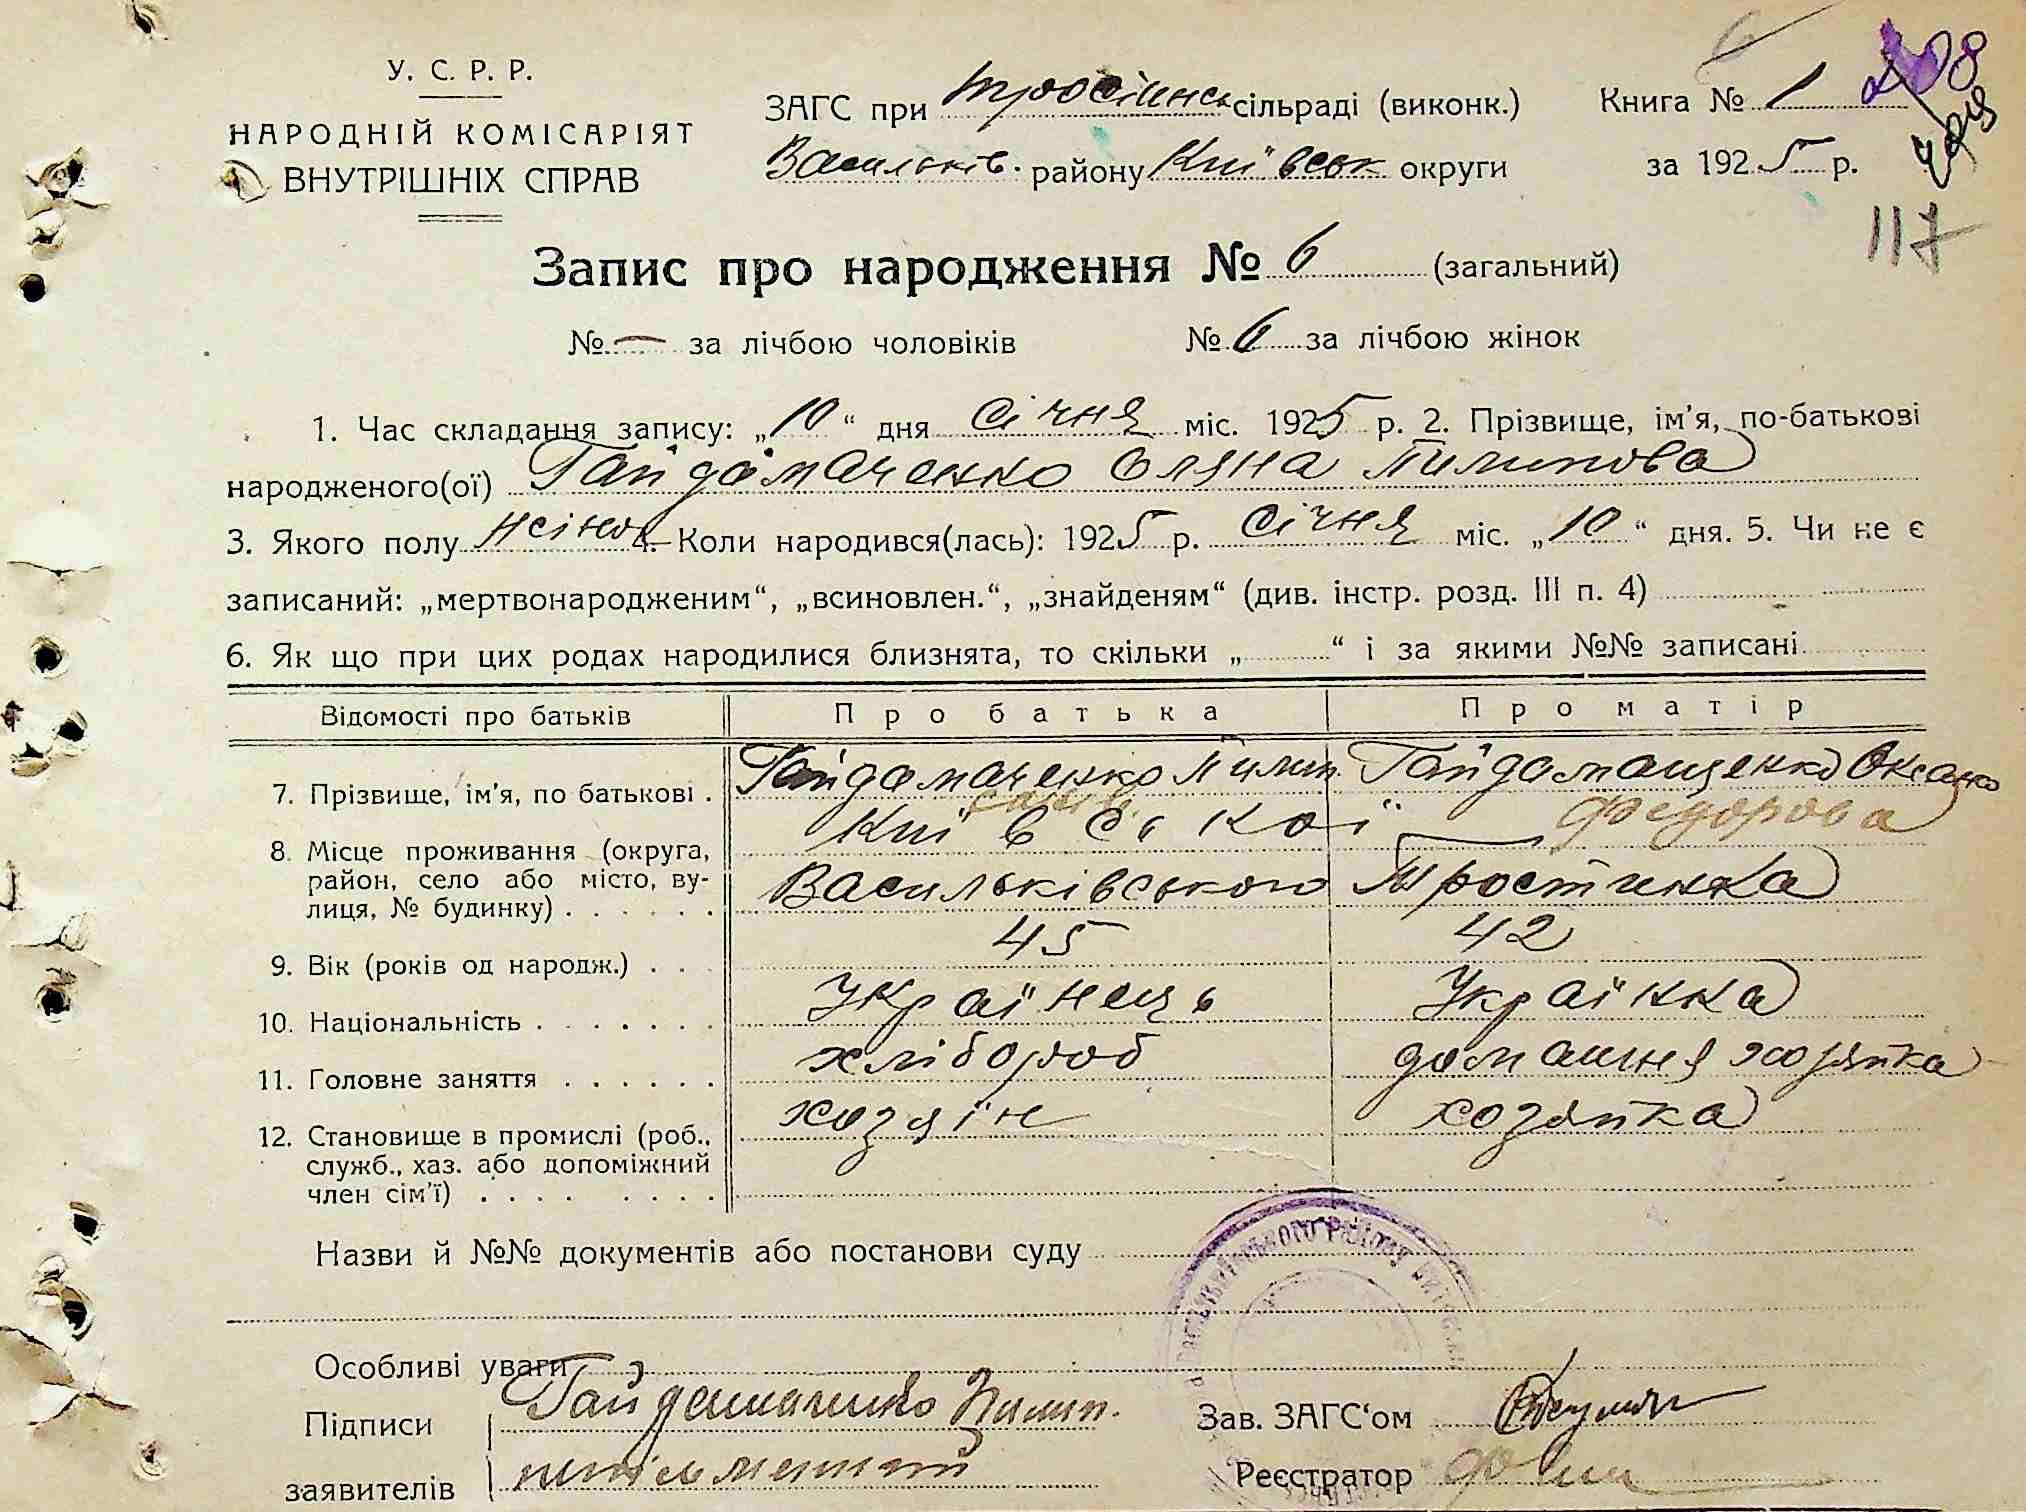 У. С. Р. Р.
НАРОДНІЙ КОМІСАРІЯТ
ВНУТРІШНІХ СПРАВ
ЗАГС при сільраді (виконк.) Книга № 1
Васильків. району Київськ округи за 1925 р.
117
Запис про народження № 6 (загальний)
№ — за лічбою чоловіків № 6 за лічбою жінок
1. Час складання запису: „10“ дня Січня міс. 1925 р. 2. Прізвище, ім'я, по-батькові
народженого(ої) Гайдамаченко Оляна Пилипова
3. Якого полу жіноч 4. Коли народився(лась): 1925 р. Січня міс. „10“ дня. 5. Чи не є
записаний: „мертвонародженим“, „всиновлен.“, „знайденям“ (див. інстр. розд. III п. 4)
6. Як що при цих родах народилися близнята, то скільки „ “ і за якими №№ записані
Відомості про батьків Про батька Про матір
7. Прізвище, ім'я, по батькові . Гайдамаченко Пилип. Гайдамащенко Оксана
Федорова
8. Місце проживання (округа, район, село або місто, вулиця, № будинку) . . . . . . Київської
Васильківського Тростинка
9. Вік (років од народж.) . . . 45 42
10. Національність . . . . . . . Українець Українка
11. Головне заняття . . . . . . хлібороб домашня хозяйка
12. Становище в промислі (роб., служб., хаз. або допоміжний член сім'ї) . . . . . . . . хозяїн хозяйка
Назви й №№ документів або постанови суду
Особливі уваги
Підписи Гайдамаченко Пилип.
заявителів неписьменний
Зав. ЗАГС‘ом
Реєстратор